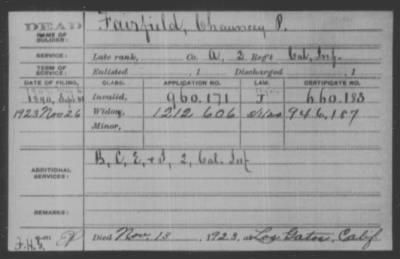 DEAD
NAME OF SOLDIER: Fairfield, Chauncey P.
SERVICE: Late rank, Co. A, 2 Reg't Cal. Inf.
TERM OF SERVICE: Enlisted , 1 Discharged , 1
DATE OF FILING. CLASS. APPLICATION NO. LAW. CERTIFICATE NO.
1890, Sept Invalid, 960.171 J 660.183
1923 Nov 26 Widow, 1212 606 946,187
Minor,
ADDITIONAL SERVICES: B, C, E, + I, 2, Cal. Inf
REMARKS:
Died Nov. 13, 1923, at Los Gatos, Calif